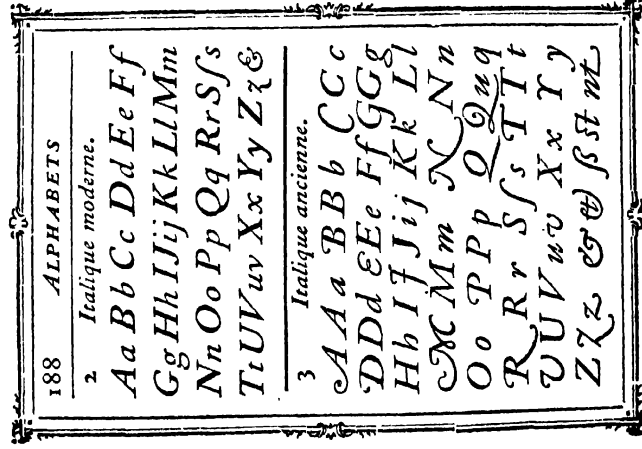 188 ALPHABETS
2 Italique moderne.
Aa Bb Cc Dd Ee Ff
Gg Hh IJij Kk Ll Mm
Nn Oo Pp Qq Rr Sſs
Tt UVuv Xx Yy Zz &
3 Italique ancienne.
AA a BB b CC c
DDd EEe Ff GGg
Hh I J J i j K k L l
MMm NNn
Oo PPp QQuq
RRr Sſs TTt
UUVuv Xx Y y
ZZz & & ß st nt